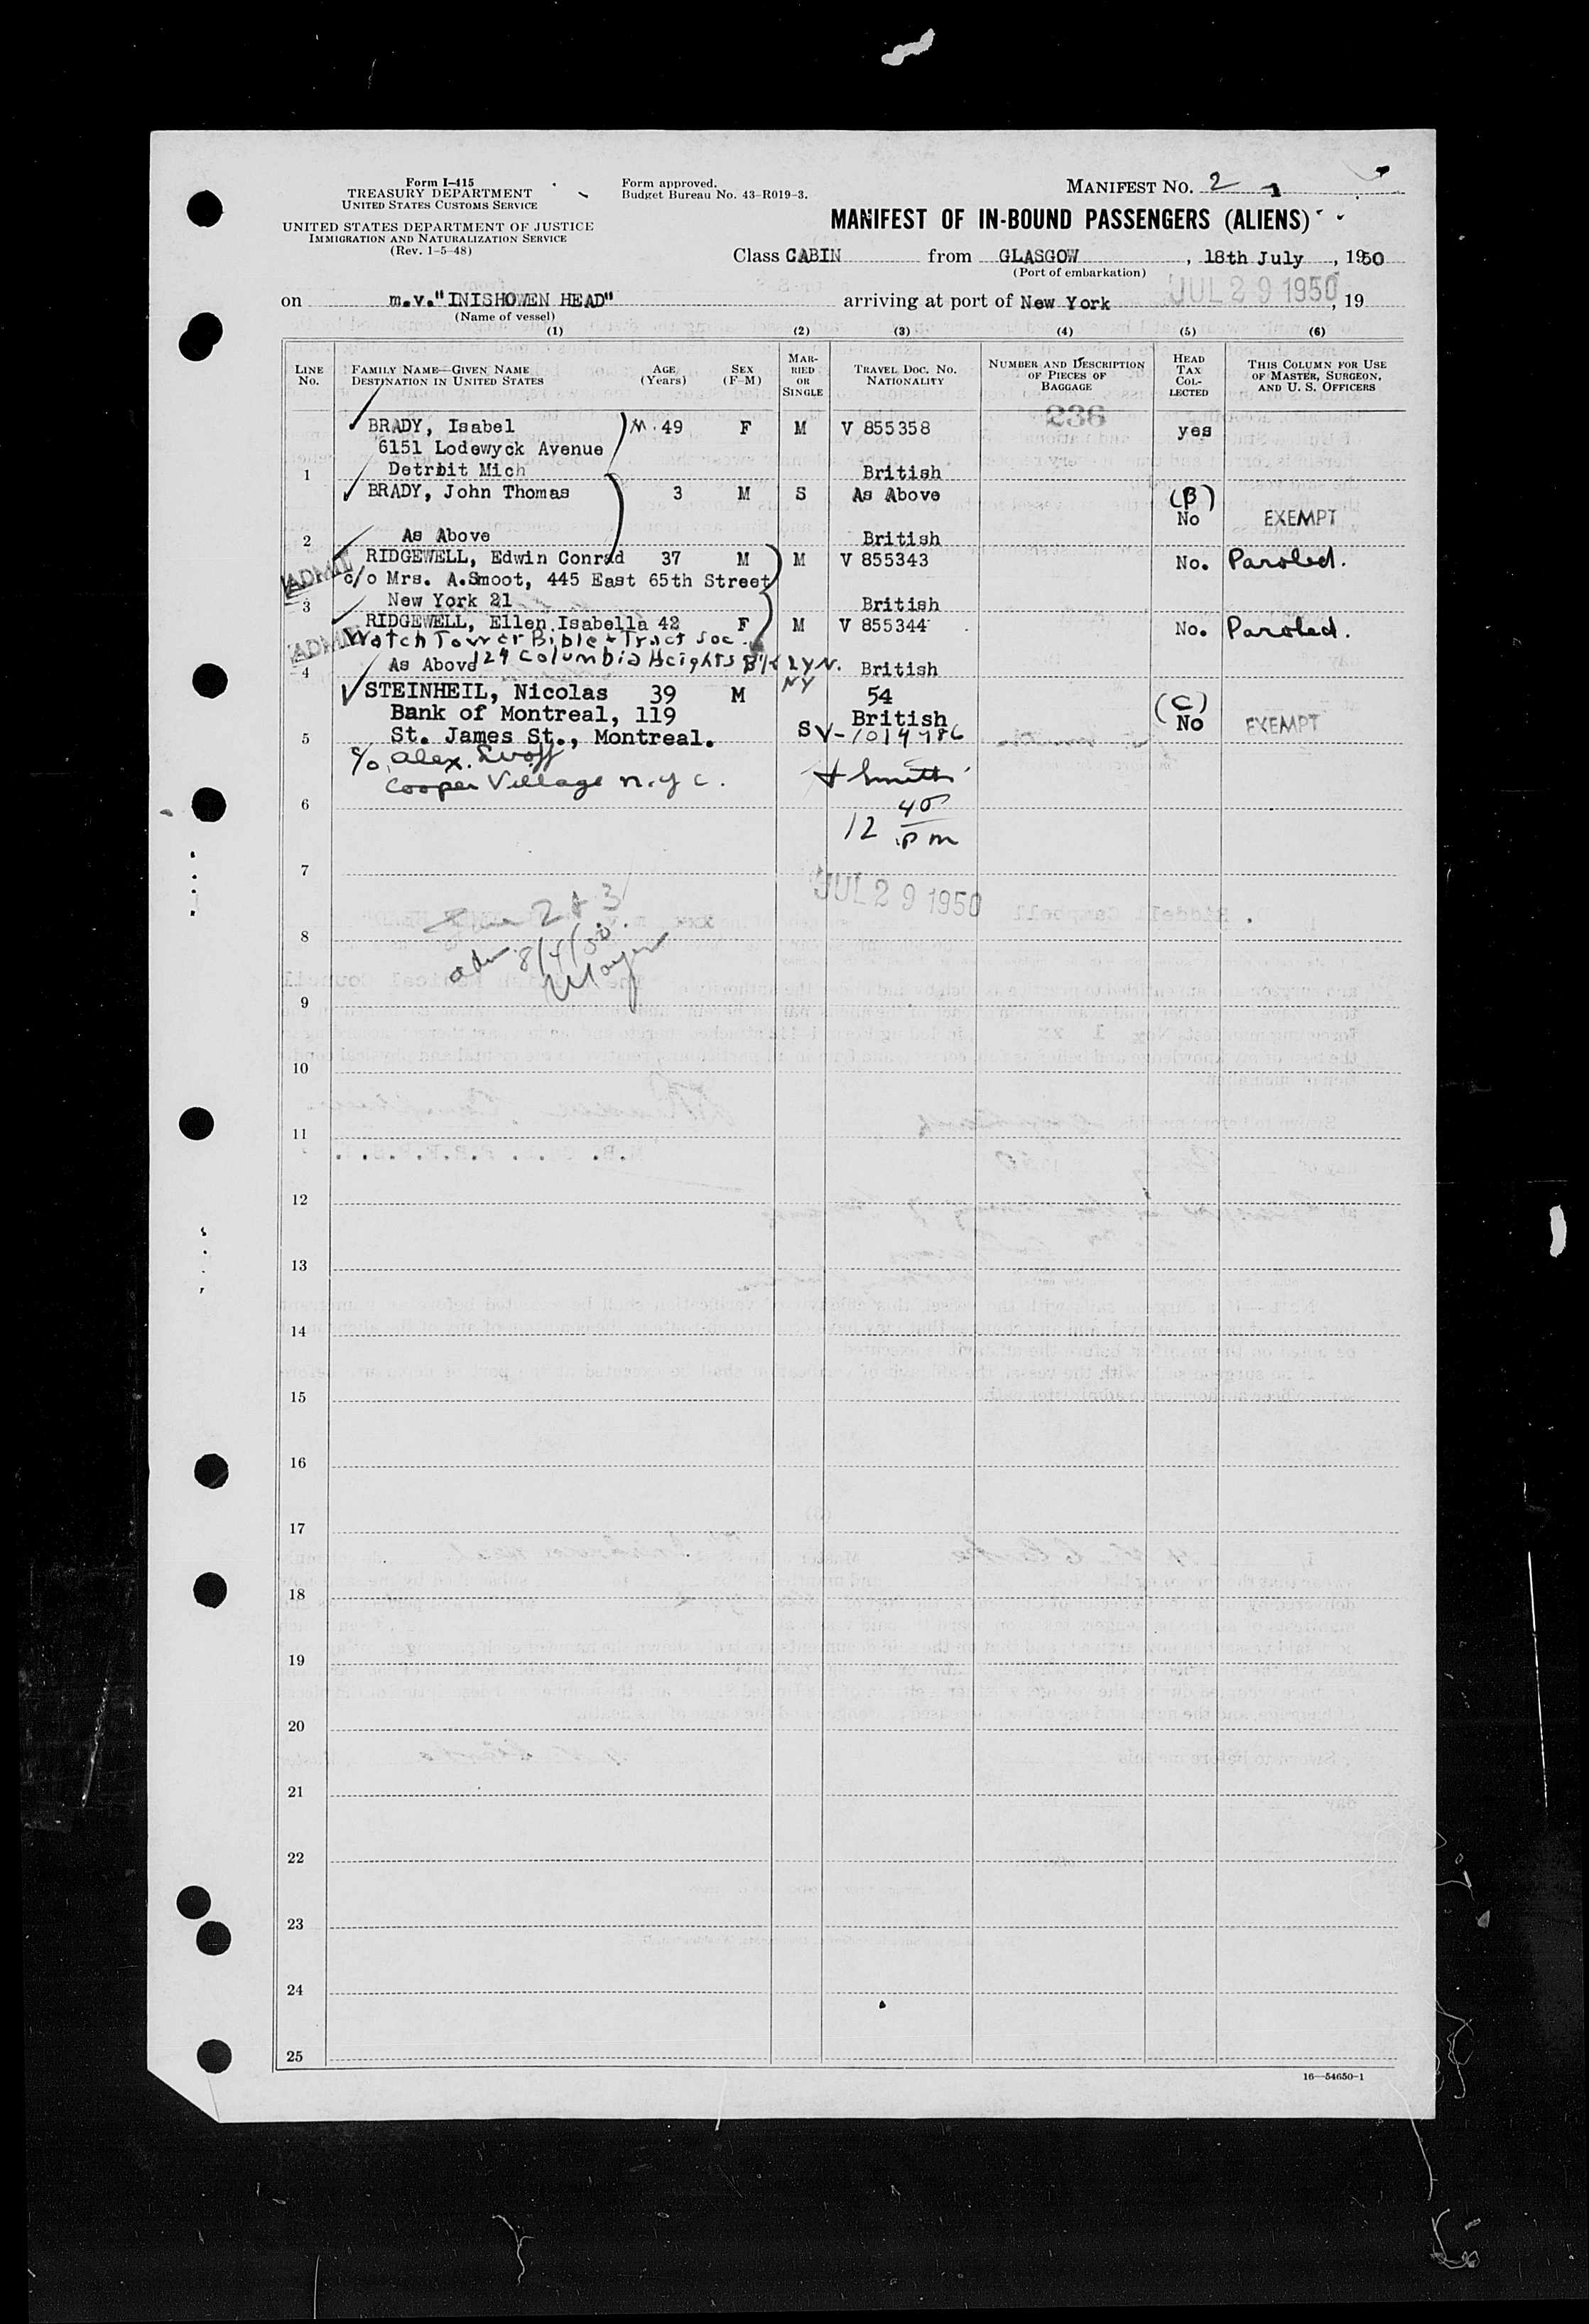 Form I-415
TREASURY DEPARTMENT
UNITED STATES CUSTOMS SERVICE
UNITED STATES DEPARTMENT OF JUSTICE
IMMIGRATION AND NATURALIZATION SERVICE
(Rev. 1-5-48)
Form approved.
Budget Bureau No. 43-R019-3.
MANIFEST NO. 2
MANIFEST OF IN-BOUND PASSENGERS (ALIENS)
Class CABIN from GLASGOW, 18th July, 1950
(Port of embarkation)
JUL 29 1950
on m.v."INISHOWEN HEAD" arriving at port of New York, 19
(Name of vessel)
(1) (2) (3) (4) (5) (6)
LINE No.
FAMILY NAME—GIVEN NAME DESTINATION IN UNITED STATES
AGE (Years)
SEX (F-M)
MARRIED OR SINGLE
TRAVEL DOC. NO. NATIONALITY
NUMBER AND DESCRIPTION OF PIECES OF BAGGAGE
HEAD TAX COLLECTED
THIS COLUMN FOR USE OF MASTER, SURGEON, AND U. S. OFFICERS
236
BRADY, Isabel M. 49 F M V 855358 yes
6151 Lodewyck Avenue
1 Detroit Mich British
BRADY, John Thomas 3 M S As Above (B)
No EXEMPT
2 As Above British
RIDGEWELL, Edwin Conrad 37 M M V 855343 No. Paroled.
ADMIT c/o Mrs. A.Smoot, 445 East 65th Street
3 New York 21 British
RIDGEWELL, Ellen Isabella 42 F M V 855344 No. Paroled.
ADMIT Watch Tower Bible & Tract Soc.
4 As Above 124 Columbia Heights B'klyn. British
NY
STEINHEIL, Nicolas 39 M 54 (C)
Bank of Montreal, 119 British No EXEMPT
5 St. James St., Montreal. S V-1014786
c/o Alex.
Cooper Village N.Y C.
Smith
6 12 40
pm
7
JUL 29 1950
2 & 3
8
adm 8/4/50
9
10
11
12
13
14
15
16
17
18
19
20
21
22
23
24
25
16—54650-1